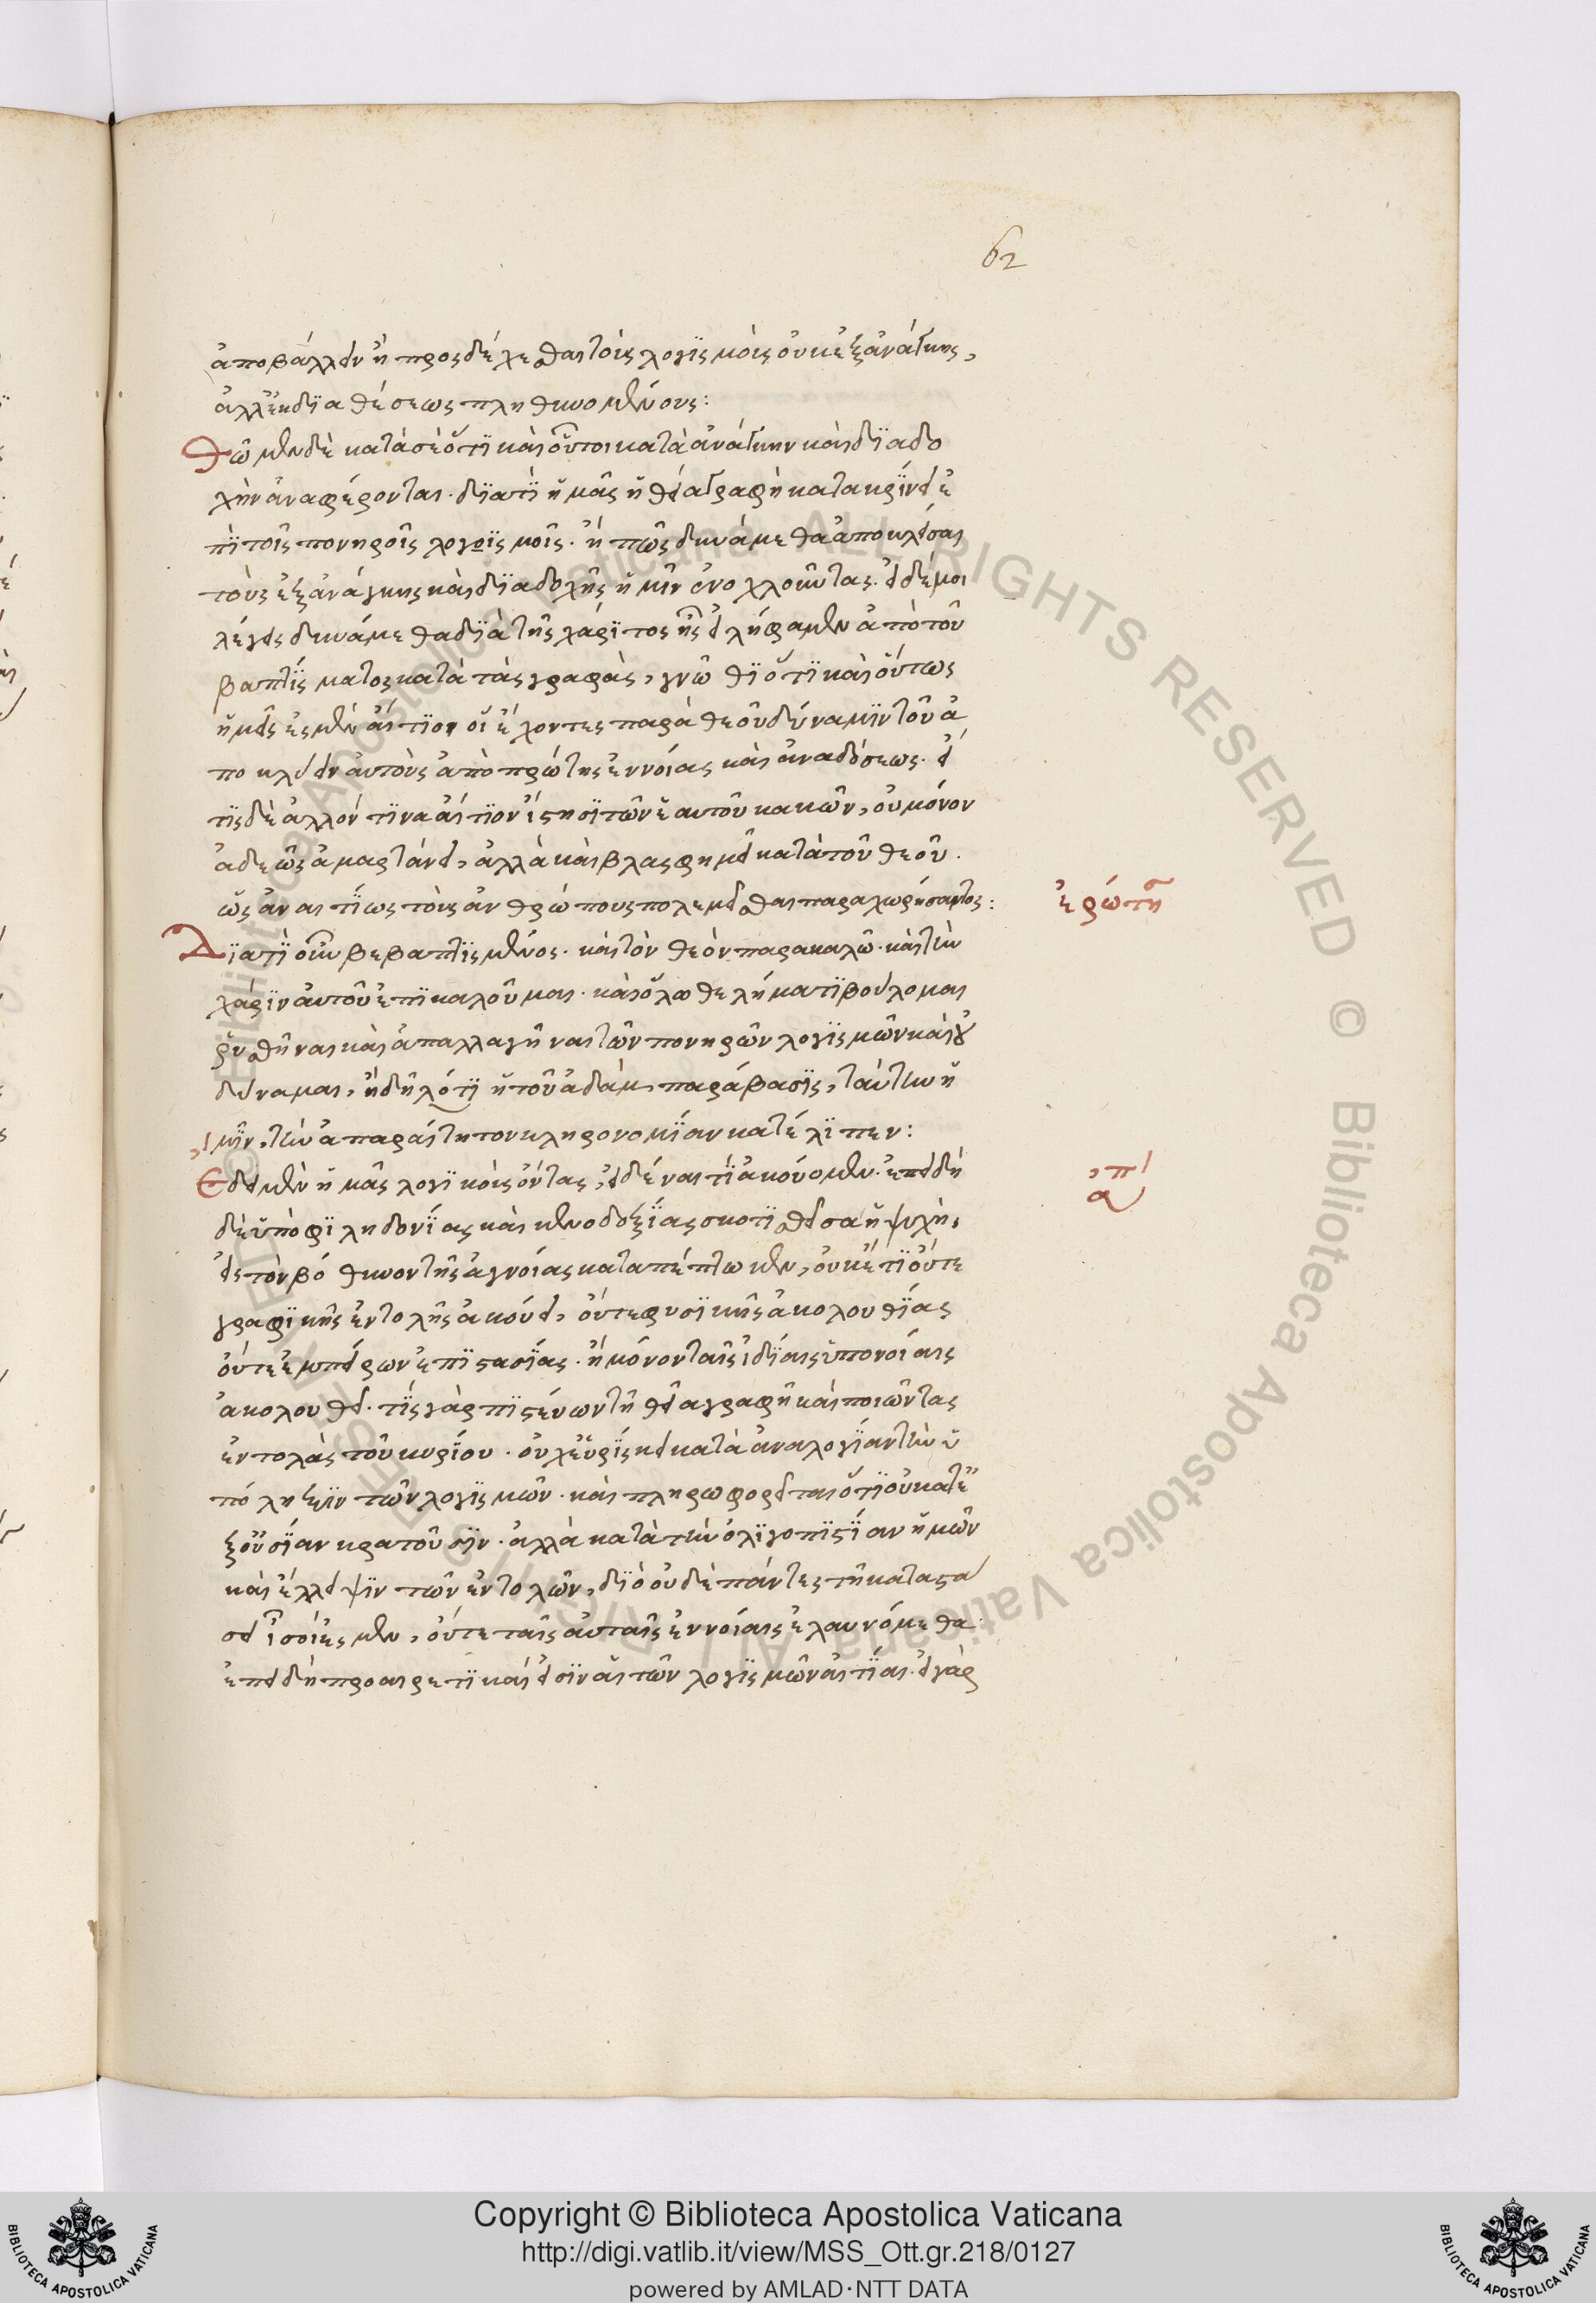 62
ἀποβάλλειν ἢ προσδέχεσθαι τοὶς λογϊσμοὶς οὐκ ἐξανάγκης,
ἀλλ' ἐκ δϊαθέσεως πληθυνομένους:
Θῶμεν δὲ κατὰ σὲ ὅτϊ καὶ οὗτοι κατὰ ἀνάγκην καὶ δϊαδο
χὴν ἀναφέρονται. δϊατὶ ἡμᾶς ἡ θεία γραφὴ κατακρϊνει ἐ
πϊ τοῖς πονηροῖς λογϊσμοῖς. ἢ πῶς δυνάμεθα ἀποκλεῖσαι
τοὺς ἐξανάγκης καὶ δϊαδοχῆς ἡμῖν ἐνοχλοῦντας. εἰ δέ μοι
λέγεις δυνάμεθα δϊὰ τῆς χάρϊτος ἧς εἰλήφαμεν ἀπὸ τοῦ
βαπτϊσματος κατὰ τὰς γραφὰς, γνῶθϊ ὅτϊ καὶ οὕτως
ἡμεῖς ἐσμὲν αἴτϊοι οἱ ἔχοντες παρὰ θεοῦ δύναμϊν τοῦ ἀ
ποκλείειν αὐτοὺς ἀπὸ πρώτης ἐννοίας καὶ ἀναδόσεως. εἴ
τϊς δὲ ἄλλόν τϊνα αἴτϊον ἵστησϊ τῶν ἑαυτοῦ κακῶν, οὐ μόνον
ἀδεῶς ἁμαρτάνει, ἀλλὰ καὶ βλασφημεῖ κατὰ τοῦ θεοῦ.
ὡς ἀναιτΐως τοὺς ἀνθρώπους πολεμεῖσθαι παραχωρήσαντος:
ἐρώτη
Δϊατὶ οὖν βεβαπτϊσμένος. καὶ τὸν θεὸν παρακαλῶ. καὶ τὴν
χάρϊν αὐτοῦ ἐπϊκαλοῦμαι. καὶ ὅλω θελήματϊ βούλομαι
ῥυσθῆναι καὶ ἀπαλλαγῆναι τῶν πονηρῶν λογϊσμῶν καὶ οὐ
δύναμαι, ἢ δῆλότϊ ἡ τοῦ ἀδὰμ παράβασϊς, ταύτην ἡ
μῖν, τὴν ἀπαραίτητον κληρονομΐαν κατέλϊπεν:
ἀπ
Εδει μὲν ἡμᾶς λογϊκοὶς ὄντας, εἰδέναι τΐ ἀκούομεν. ἐπειδὴ
δὲ ὑπὸ φϊληδονΐας καὶ κενοδοξΐας σκοτϊσθεῖσα ἡ ψυχὴ,
εἰς τὸν βόθυνον τῆς ἀγνοίας καταπέπτωκεν, οὐκέτϊ οὔτε
γραφϊκῆς ἐντολῆς ἀκούει, οὔτε φυσϊκῆς ἀκολουθΐας
οὔτε ἐμπείρων ἐπϊστασΐας. ἢ μόνον ταῖς ἰδΐαις ὑπονοίαις
ἀκολουθεῖ. τΐς γὰρ πϊστεύων τῆ θεῖα γραφῆ καὶ ποιῶν τας
ἐντολὰς τοῦ κυρΐου. οὐχ εὑρΐσκει κατὰ ἀναλογΐαν τὴν ὑ
πόληξϊν τῶν λογϊσμῶν. καὶ πληρωφορεῖται ὅτϊ οὐ κατ' ἐ
ξουσΐαν κρατοῦσϊν. ἀλλὰ κατὰ τὴν ὀλϊγοπϊστΐαν ἡμῶν
καὶ ἔλλειψϊν τῶν ἐντολῶν, δϊὸ οὐδὲ πάντες τῆ καταστα
σει ἶσοί ἐσμεν, οὔτε ταῖς αὐταῖς ἐννοίαις ἐλαυνόμεθα.
ἐπειδὴ προαιρετϊκαί εἰσϊν αἱ τῶν λογϊσμῶν αἰτΐαι. εἰ γὰρ
Copyright © Biblioteca Apostolica Vaticana
http://digi.vatlib.it/view/MSS_Ott.gr.218/0127
powered by AMLAD·NTT DATA